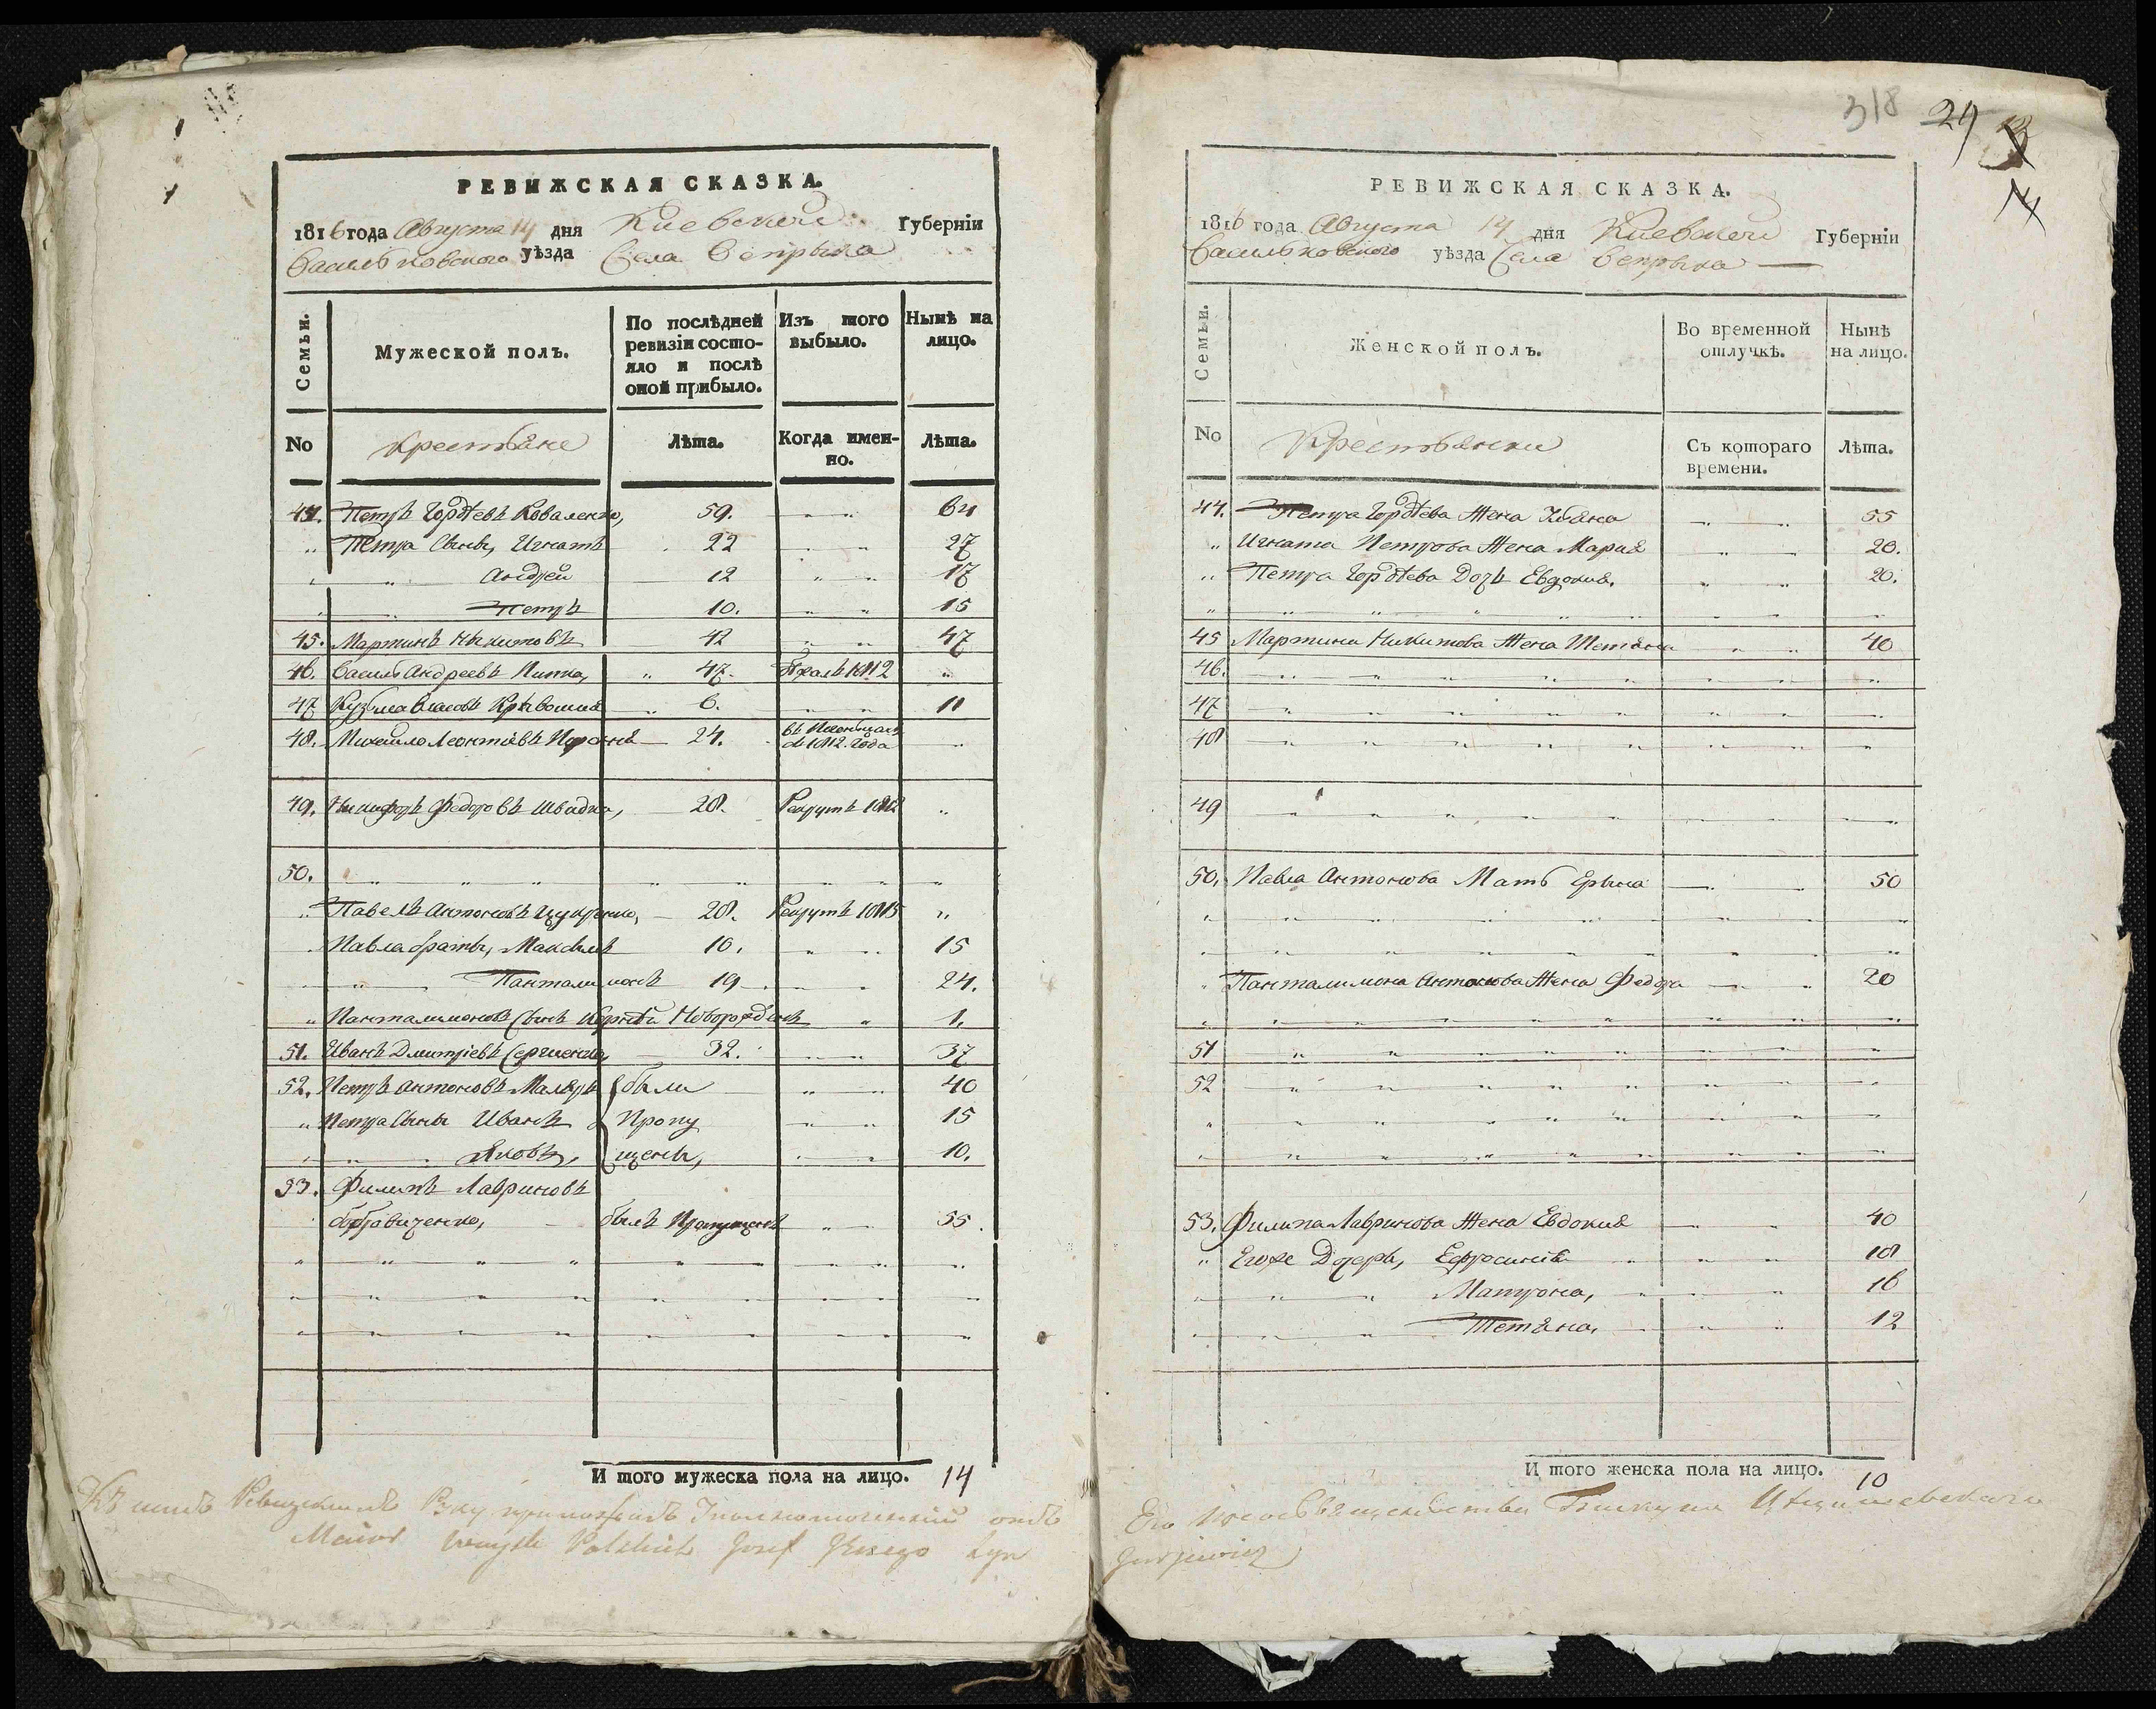 РЕВИЖСКАЯ СКАЗКА.
1816 года Августа 14 дня Киевской Губерніи
Васильковского уѣзда Села Вепрыка
Семьи.
Мужеской полъ.
По послѣдней ревизіи состо-
яло и послѣ
оной прибыло.
Изъ того выбыло.
Нынѣ на лицо.
No
Крестьяне
Лѣта.
Когда имен-
но.
Лѣта.
44. Петръ Гордѣевъ Коваленко, 59. 64
Петра Сыны, Игнатъ 22 27
Андрей 12 17
Петръ 10. 15
45. Мартинъ Никитовъ 42 47
46. Василь Андреевъ 47. 1812
47 Кузьма Власовъ 6. 11
48. Михайло Леонтіевъ 24. 1812. года
49. Никифоръ Федоровъ Швадка, 28. Рекрутъ 1812
50.
Павелъ Антоновъ 28. Рекрутъ 1815
Павла браты, Максимъ 10. 15
Панталимонъ 19 24.
Панталимоновъ Сынъ Корнѣй Новорожденъ 1.
51. Иванъ Дмитріевъ Сергиенко 32. 37
52. Петръ Антоновъ Маляръ были 40
Петра Сыны Иванъ Пропу 15
Яковъ, щены, 10.
53. Филипъ Лавриновъ
Бобровиченко, былъ Пропущенъ 55.
И того мужеска пола на лицо. 14
318 24
РЕВИЖСКАЯ СКАЗКА.
1816 года Августа 14 дня Киевской Губерніи
Васильковского уѣзда Села Вепрыка
Семьи.
Женской полъ.
Во временной отлучкѣ.
Нынѣ на лицо.
No
Крестьянки
Съ котораго времени.
Лѣта.
44. Петра Гордѣева Жена 55
Игната Петрова Жена Марія 20.
Петра Гордѣева Дочь Евдокия. 20.
45 Мартина Никитова Жена Тетяна 40
46.
47
48
49
50. Павла Антонова Мать Ерына 50
Панталимона Антонова Жена Федора 20
51
52
53. Филипа Лавринова Жена Евдокия 40
Егоже Дочеры, Ефросинія 18
Матрона, 16
Тетяна, 12
И того женска пола на лицо. 10